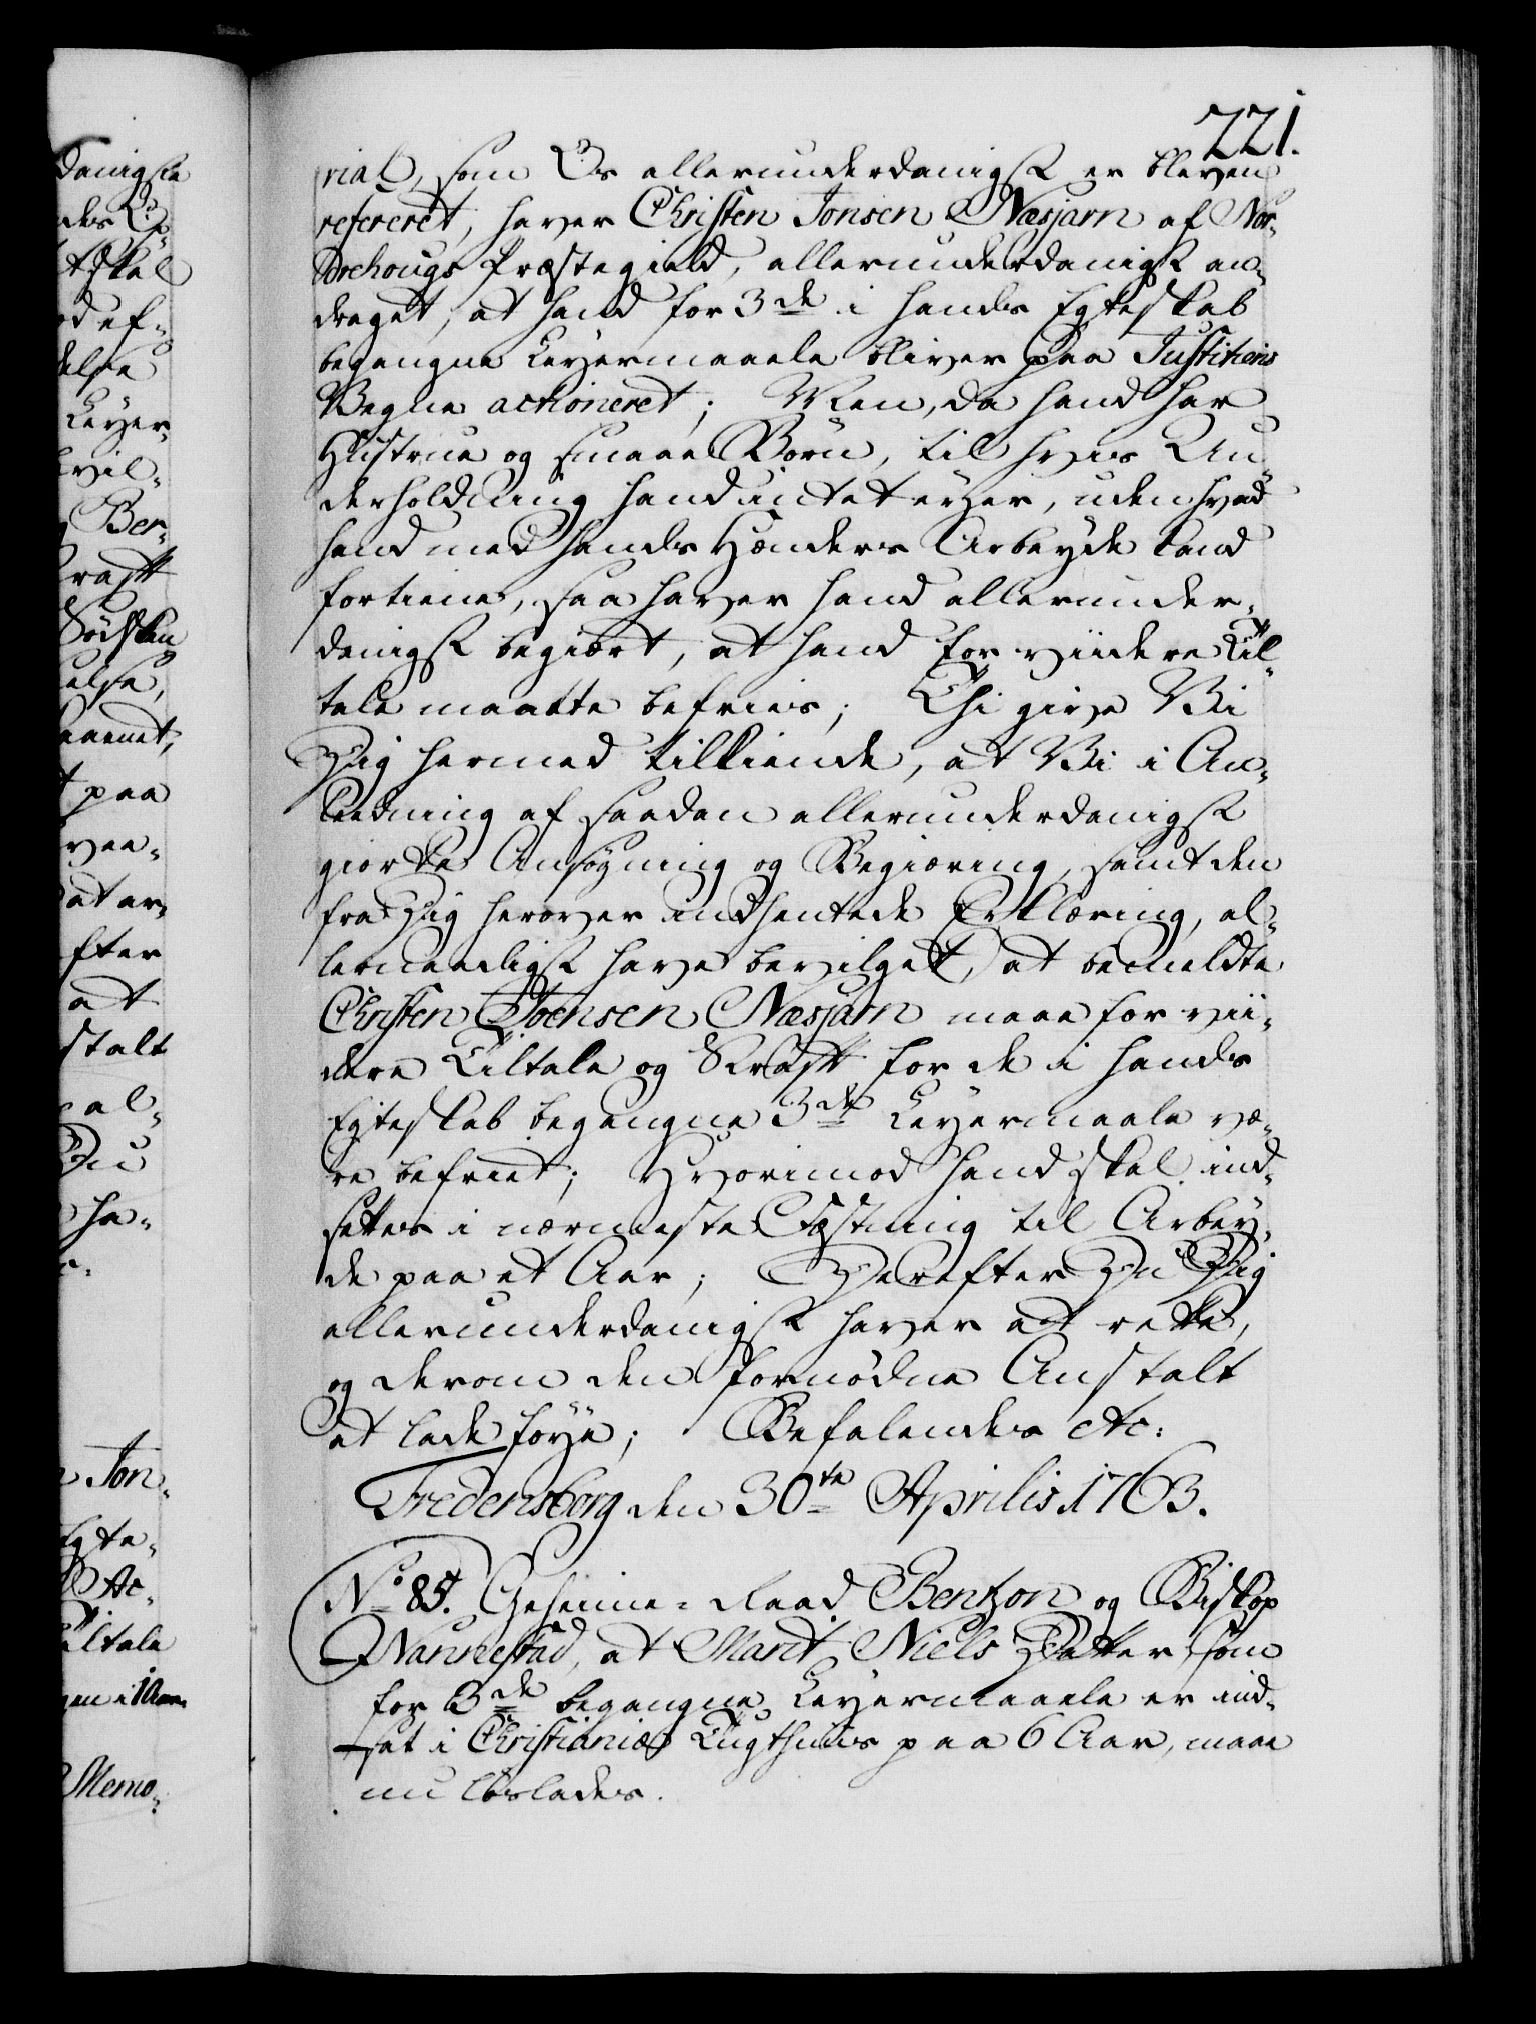 221.
rial, som Os allerunderdanigst er bleven
refereret, haver Christen Jonsen Næsjarn af Nor-
drehougs Præstegield, allerunderdanigst an-
draget, at hand for 3de i hands Egteskab
begangne Leyermaale bliver paa Justitiens
Vegne actioneret; Men, da hand har
Hustrue og smaae Børn, til hvis Un-
derholdning hand intet eyer, uden hvad
hand med hands Hænders Arbeyde kand
fortiene, saa haver hand allerunder-
danigst begiært, at hand for viidere Til-
tale maatte befries; Thi give Vi
Dig hermed tilkiende, at Vi i An-
ledning af saadan allerunderdanigst
giorte Ansøgning og Begiæring, samt den
fra Dig herover indhentede Erklæring, al-
lernaadigst have bevilget, at bemeldte
Christen Joensen Næsjarn maae for vii-
dere Tiltale og Straff for de i hands
Egteskab begangne 3de Leyermaale væ-
re befriet; Hvorimod hand skal ind-
settes i nærmeste Fæstning til Arbey-
de paa et Aar; Derefter Du Dig
allerunderdanigst haver at rette,
og derom den fornødne Anstalt
at lade føye; Befalendes etc:
Fredensborg den 30te Aprilis 1763.
No 85. Geheime-Raad Bentzon og Biskop
Nannestad, at Marit Niels Datter som
for 3de begangne Leyermaale er ind-
sat i Christianiæ Tugthuus paa 6 Aar, maae
nu løslades.